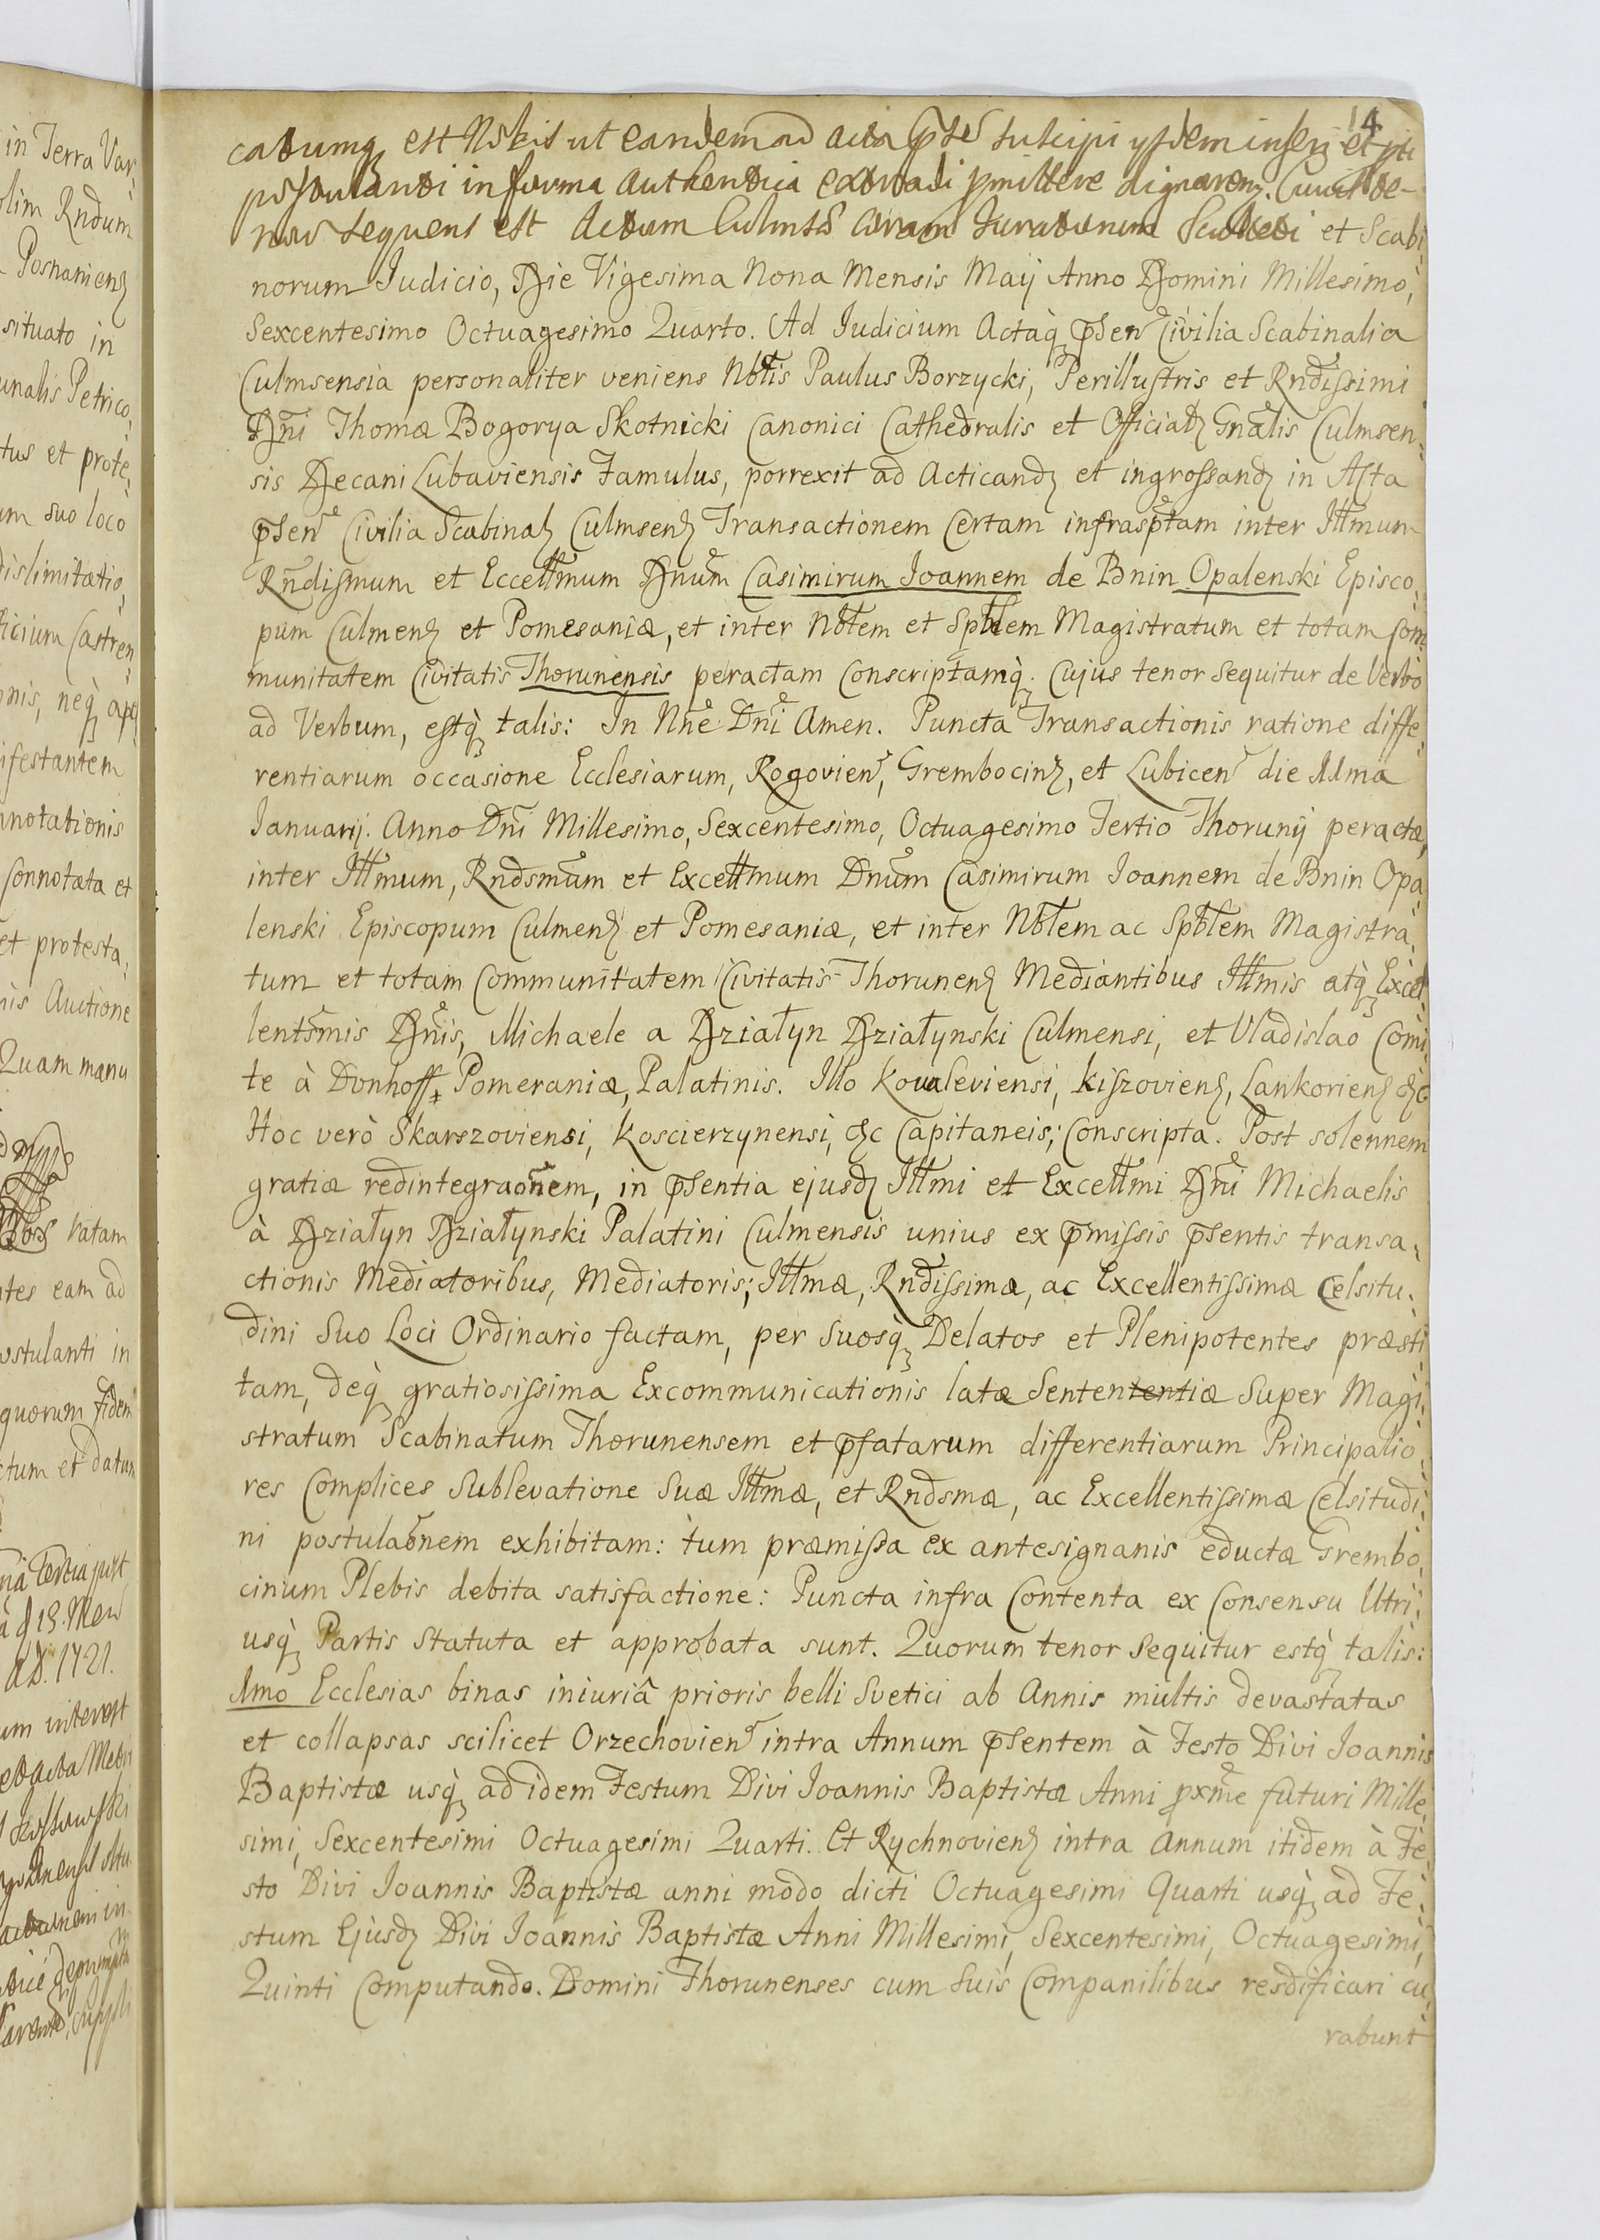 14
catumq est Nobis ut eandem ad acta pnte suscipi ysdem inseri et pti
postulanti in forma authentica extradi pmittere dignaremq. Cuius te-
nor sequens est Actum Culmsae coram Iuratorum Sculteti et Scabi,
norum Judicio, Die Vigesima Nona Mensis Maij Anno Domini Millesimo,
Sexcentesimo Octuagesimo Quarto. Ad Judicium Actaq psen Civilia Scabinalia
Culmsensia personaliter veniens Nbtis Paulus Borzycki, Perillustris et Rndissimi
Dni Thomæ Bogorya Skotnicki Canonici Cathedralis et Officiaz Gnalis Culmsen,
sis Decani Lubaviensis Famulus, porrexit ad Acticandz et ingrossandz in Acta
psen Civilia Scabinalz Culmsenz Transactionem Certam infrasptam inter Illmum
Rndissmum et Eccellmum Dnum Casimirum Joannem de Bnin Opalenski Episco,
pum Culmenz et Pomesaniæ, et inter Nbtem et Spblem Magistratum et totam Com,
munitatem Civitatis Thorunensis peractam Conscriptamq. Cujus tenor sequitur de Verbo
ad Verbum, estq talis: In Nne Dni Amen. Puncta Transactionis ratione diffe,
rentiarum occasione Ecclesiarum, Rogovien, Grembocinz, et Lubicen die 11ma
Januarij. Anno Dni Millesimo, Sexcentesimo, Octuagesimo Tertio Thorunij peractæ,
inter Illmum, Rndsmum et Excellmum Dnum Casimirum Joannem de Bnin Opa,
lenski Episcopum Culmenz et Pomesaniæ, et inter Nbtem ac Spblem Magistra,
tum et totam Communitatem Civitatis Thorunenz Mediantibus Illmis atq Excel,
lentsmis Dnis, Michaele a Działyn Działynski Culmensi, et Vladislao Comi,
te à Donhoff, Pomeraniæ, Palatinis. Illo Kowaleviensi, Kiszovienz, Lankorienz &c
Hoc verò Skarszoviensi, Koscierzynensi, &c Capitaneis, Conscripta. Post solennem
gratiæ redintegraonem, in psentia ejusdz Illmi et Excellmi Dni Michaelis
à Działyn Działynski Palatini Culmensis unius ex pmissis psentis transa,
ctionis Mediatoribus, Mediatoris; Illmæ, Rndissimæ, ac Excellentissimæ Celsitu,
dini Suo Loci Ordinario factam, per Suosq Delatos et Plenipotentes præsti,
tam, deq gratiosissima Excommunicationis latæ Sentententiæ Super Magi,
stratum Scabinatum Thorunensem et pfatarum differentiarum Principalio,
res Complices Sublevatione Suæ Illmæ, et Rndsmæ, ac Excellentissimæ Celsitudi,
ni postulaonem exhibitam: tum præmissa ex antesignanis eductæ Grembo,
cinum Plebis debita satisfactione: Puncta infra Contenta ex Consensu Utri,
usq Partis Statuta et approbata sunt. Quorum tenor sequitur estq talis:
1mo Ecclesias binas iniuriâ prioris belli Svetici ab Annis multis devastatas
et collapsas scilicet Orzechovien intra Annum psentem à Festo Divi Joannis
Baptistæ usq ad idem Festum Divi Joannis Baptistæ Anni pxme futuri Mille,
simi, Sexcentesimi Octuagesimi Quarti. Et Rychnovienz intra Annum itidem à Fe,
sto Divi Joannis Baptistæ anni modo dicti Octuagesimi Quarti usq ad Fe,
stum Ejusdz Divi Joannis Baptistæ Anni Millesimi, Sexcentesimi, Octuagesimi,
Quinti Computando. Domini Thorunenses cum Suis Companilibus resdificari cu,
rabunt